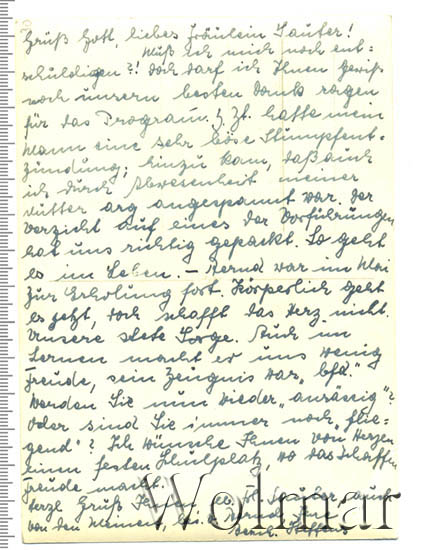 Grüß Gott, liebes Fräulein Sauter!
Muß ich mich noch ent=
schuldigen?! Doch darf ich Ihnen gewiß
noch unsern besten Dank sagen
für das Program. Z. Zt. hatte mein
Mann eine sehr böse Stumpfent=
zündung; hinzu kam, daß auch
ich durch Abwesenheit meiner
Mutter arg angespannt war. Der
Verzicht auf eines der Vorführungen
hat uns richtig gepackt. So geht
es im Leben. – Bernd war im Mai
zur Erholung fort. Körperlich geht
es jetzt, doch schafft das Herz nicht.
Unsere stete Sorge. Auch im
Lernen macht er uns wenig
Freude, sein Zeugnis war "bfd."
Werden Sie nun wieder "ansässig"?
Oder sind Sie immer noch "flie=
gend"? Ich wünsche Ihnen von Herzen
einen festen Schulplatz, wo das Schaffen
Freude macht.
Herzl. Gruß Ihnen, lb. Frl. Sauter, auch
von den Meinen,
Steffens
Wolmar